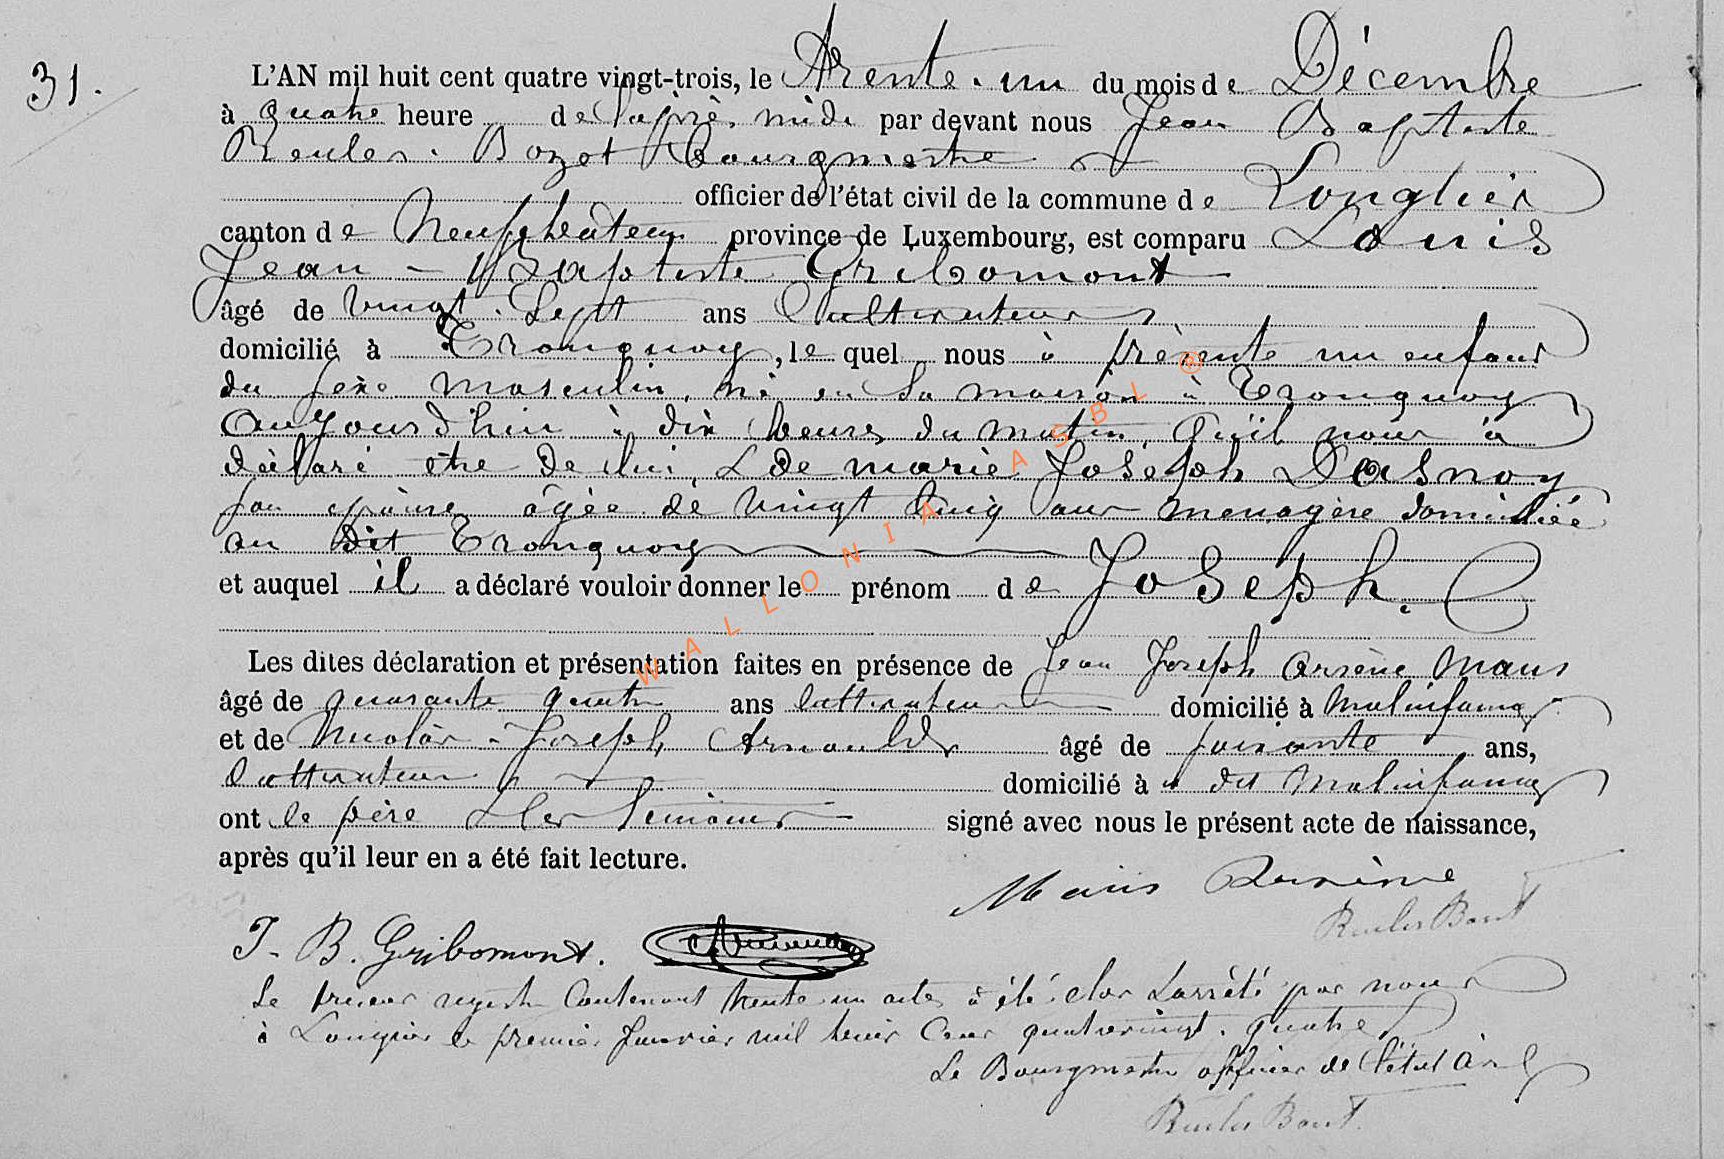 31.
L'AN mil huit cent quatre vingt-trois, le Trente-un du mois de Décembre
à quatre heure de l'après midi par devant nous Jean Baptiste
Reuler-Bozet Bourgmestre
officier de l'état civil de la commune de Longlier
canton de Neufchâteau province de Luxembourg, est comparu Louis
Jean-Baptiste Gribomont
âgé de vingt-Sept ans Cultivateur
domicilié à Tronquoy, le quel nous à présenté un enfant
du sexe masculin, né en sa maison à Tronquoy
Aujourd'hui à dix heures du matin, Qu'il nous à
déclaré être de lui, & de marie Joseph Dasnoy
son épouse âgée de vingt cinq ans menagère domiciliée
au dit Tronquoy
et auquel il a déclaré vouloir donner le prénom de Joseph.
Les dites déclaration et présentation faites en présence de Jean Joseph Arsène Maus
âgé de quarante quatre ans Cultivateur domicilié à Molinfaing
et de Nicolas-Joseph Arnould âgé de soixante ans,
Cultivateur domicilié à u dit Molinfaing
ont le père & les témoins signé avec nous le présent acte de naissance,
après qu'il leur en a été fait lecture.
Maus Arsène
J-B. Gribomont.
Le présent registre Contenant trente un actes à été clos & arrêté par nous
à Longlier le premier Janvier mil huit Cent quatrevingt-quatre
Le Bourgmestre officier de l'état Civil
WALLONIA ASBL ®